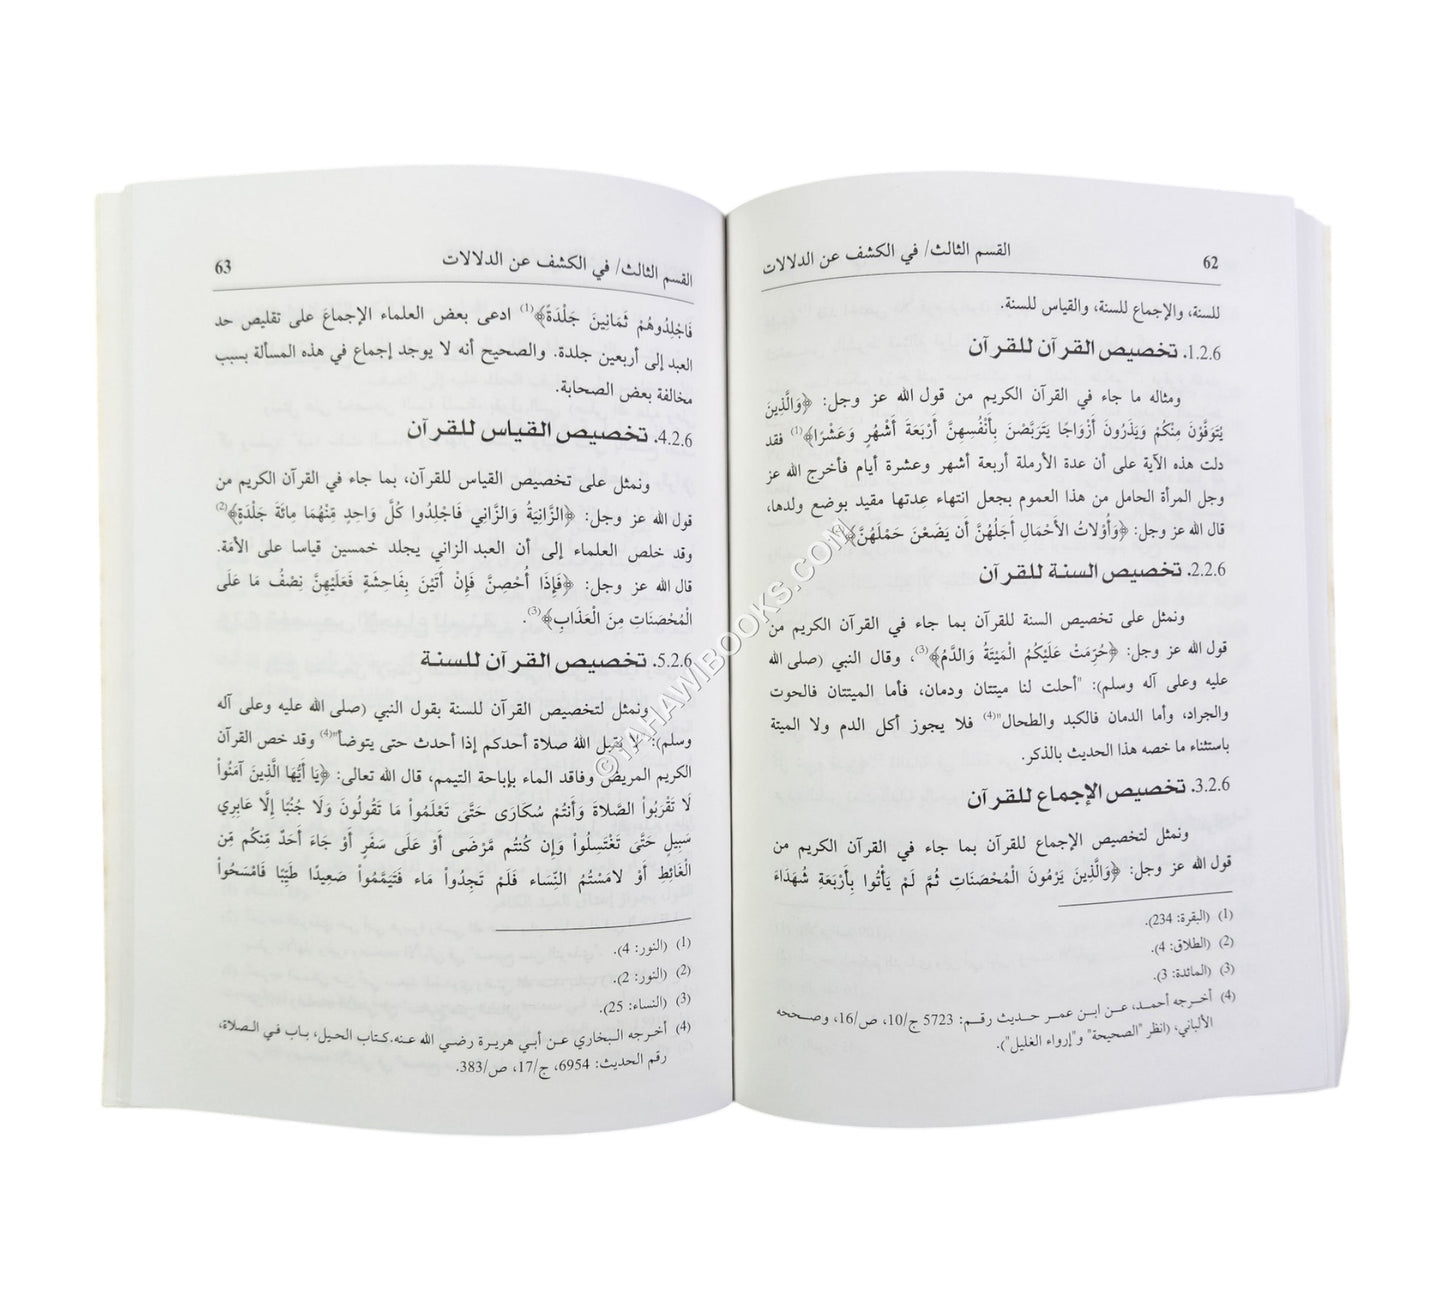 62
القسم الثالث/ في الكشف عن الدلالات
للسنة، والإجماع للسنة، والقياس للسنة.
1.2.6. تخصيص القرآن للقرآن
ومثاله ما جاء في القرآن الكريم من قول الله عز وجل: ﴿وَالَّذِينَ
يُتَوَفَّوْنَ مِنكُمْ وَيَذَرُونَ أَزْوَاجًا يَتَرَبَّصْنَ بِأَنْفُسِهِنَّ أَرْبَعَةَ أَشْهُرٍ وَعَشْرًا﴾(1) فقد
دلت هذه الآية على أن عدة الأرملة أربعة أشهر وعشرة أيام فأخرج الله عز
وجل المرأة الحامل من هذا العموم بجعل انتهاء عِدتها مقيد بوضع ولدها،
قال الله عز وجل: ﴿وَأُوْلَاتُ الأَحْمَالِ أَجَلُهُنَّ أَن يَضَعْنَ حَمْلَهُنَّ﴾(2).
2.2.6. تخصيص السنة للقرآن
ونمثل على تخصيص السنة للقرآن بما جاء في القرآن الكريم من
قول الله عز وجل: ﴿حُرِّمَتْ عَلَيْكُمُ المَيْتَةُ وَالدَّمُ﴾(3)، وقال النبي (صلى الله
عليه وعلى آله وسلم): "أحلت لنا ميتتان ودمان، فأما الميتتان فالحوت
والجراد، وأما الدمان فالكبد والطحال"(4) فلا يجوز أكل الدم ولا الميتة
باستثناء ما خصه هذا الحديث بالذكر.
3.2.6. تخصيص الإجماع للقرآن
ونمثل لتخصيص الإجماع للقرآن بما جاء في القرآن الكريم من
قول الله عز وجل: ﴿وَالَّذِينَ يَرْمُونَ الْمُحْصَنَاتِ ثُمَّ لَمْ يَأْتُوا بِأَرْبَعَةِ شُهَدَاءَ
(1) (البقرة: 234).
(2) (الطلاق: 4).
(3) (المائدة: 3).
(4) أخرجه أحمد، عن ابن عمر حديث رقم: 5723 ج/10، ص/16، وصححه
الألباني، (انظر "الصحيحة" و"إرواء الغليل").
القسم الثالث/ في الكشف عن الدلالات
63
فَاجْلِدُوهُمْ ثَمَانِينَ جَلْدَةً﴾(1) ادعى بعض العلماء الإجماعَ على تقليص حد
العبد إلى أربعين جلدة. والصحيح أنه لا يوجد إجماع في هذه المسألة بسبب
مخالفة بعض الصحابة.
4.2.6. تخصيص القياس للقرآن
ونمثل على تخصيص القياس للقرآن، بما جاء في القرآن الكريم من
قول الله عز وجل: ﴿الزَّانِيَةُ وَالزَّانِي فَاجْلِدُوا كُلَّ وَاحِدٍ مِّنْهُمَا مِائَةَ جَلْدَةٍ﴾(2)
وقد خلص العلماء إلى أن العبد الزاني يجلد خمسين قياسا على الأمَة.
قال الله عز وجل: ﴿فَإِذَا أُحْصِنَّ فَإِنْ أَتَيْنَ بِفَاحِشَةٍ فَعَلَيْهِنَّ نِصْفُ مَا عَلَى
الْمُحْصَنَاتِ مِنَ الْعَذَابِ﴾(3).
5.2.6. تخصيص القرآن للسنة
ونمثل لتخصيص القرآن للسنة بقول النبي (صلى الله عليه وعلى آله
وسلم): "لا يقبل اللهُ صلاة أحدكم إذا أحدث حتى يتوضأ"(4) وقد خص القرآن
الكريم المريضَ وفاقد الماء بإباحة التيمم، قال الله تعالى: ﴿يَا أَيُّهَا الَّذِينَ آمَنُواْ
لَا تَقْرَبُواْ الصَّلَاةَ وَأَنتُمْ سُكَارَى حَتَّىَ تَعْلَمُواْ مَا تَقُولُونَ وَلَا جُنُبًا إِلَّا عَابِرِي
سَبِيلٍ حَتَّىَ تَغْتَسِلُواْ وَإِن كُنتُم مَّرْضَى أَوْ عَلَى سَفَرٍ أَوْ جَاءَ أَحَدٌ مِّنكُم مِّن
الْغَائِطِ أَوْ لَامَسْتُمُ النِّسَاء فَلَمْ تَجِدُواْ مَاء فَتَيَمَّمُواْ صَعِيدًا طَيِّبًا فَامْسَحُواْ
(1) (النور: 4).
(2) (النور: 2).
(3) (النساء: 25).
(4) أخرجه البخاري عن أبي هريرة رضي الله عنه.كتاب الحيل، باب في الصلاة،
رقم الحديث: 6954، ج/17، ص/383.
©TAHAWIBOOKS.COM